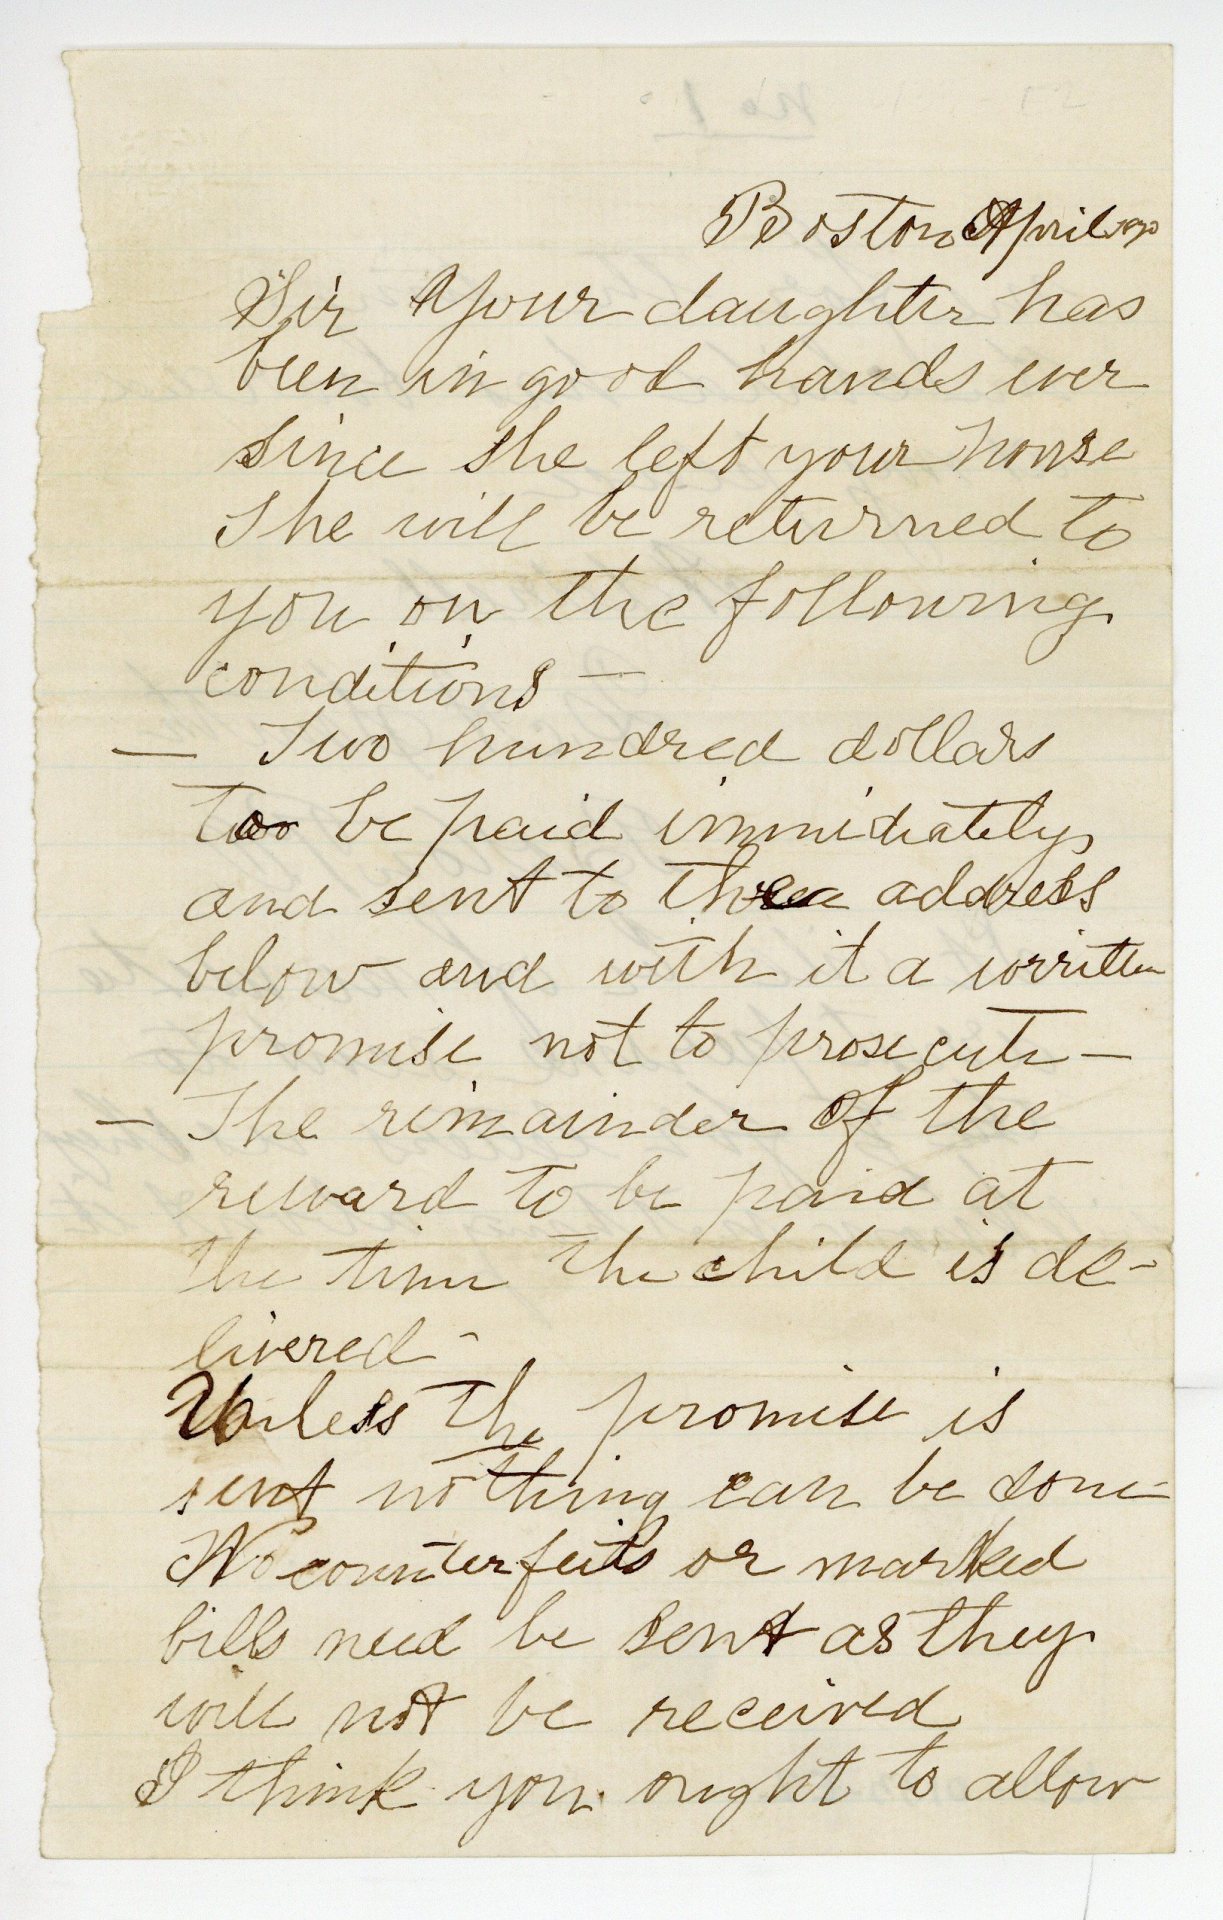 No 1.
Boston April 1870
Sir Your daughter has
been in good hands ever
since she left your house
She will be returned to
you on the following
conditions —
— Two hundred dollars
to be paid immidiately,
and sent to the address
below and with it a written
promise not to prosecute —
— The remainder of the
reward to be paid at
the time the child is de-
livered -
Unless the promise is
sent nothing can be done
No counterfeits or marked
bills need be sent as they
will not be received
I think you ought to allow